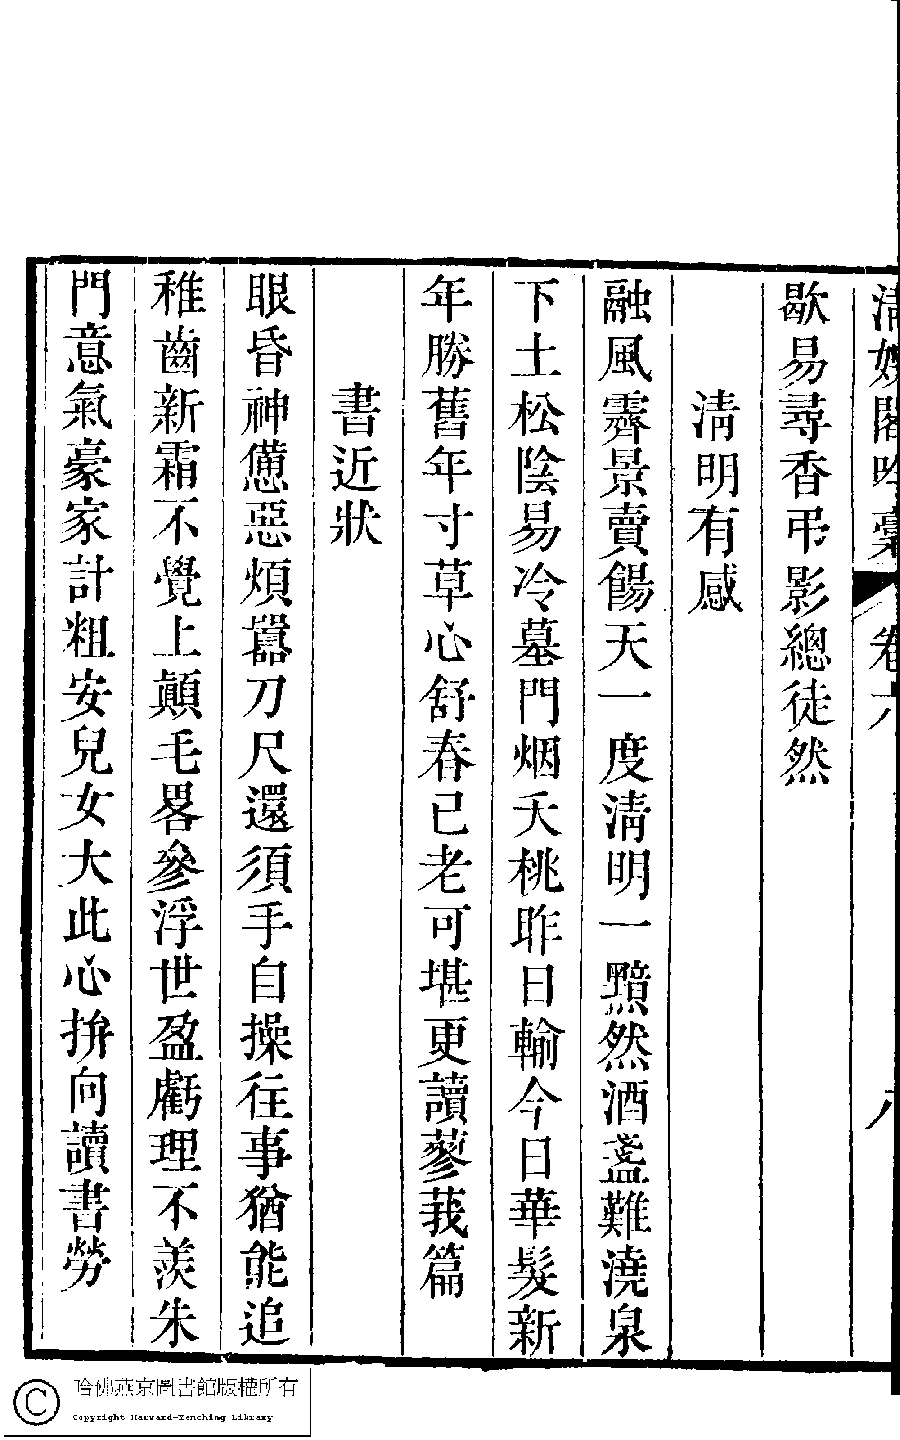 清娛閣吟藁 卷六 八
歇易尋香弔影總徒然
清明有感
融風霽景賣餳天一度清明一黯然酒盞難澆泉
下土松陰易冷墓門烟夭桃昨日輸今日華髮新
年勝舊年寸草心舒春已老可堪更讀蓼莪篇
書近狀
眼昏神憊惡煩囂刀尺還須手自操往事猶能追
稚齒新霜不覺上顛毛畧參浮世盈虧理不羨朱
門意氣豪家計粗安兒女大此心拚向讀書勞
哈佛燕京圖書館版權所有
Copyright Harvard-Yenching Library